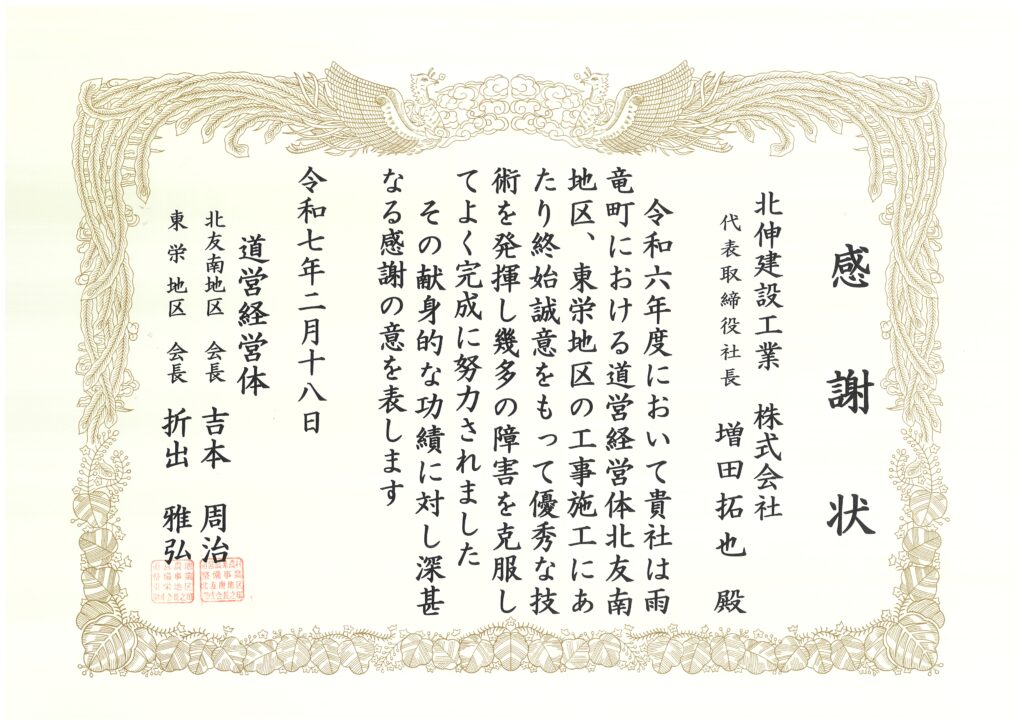 感謝状
北伸建設工業 株式会社
代表取締役社長 増田拓也 殿
令和六年度において貴社は雨
竜町における道営経営体北友南
地区、東栄地区の工事施工にあ
たり終始誠意をもって優秀な技
術を発揮し幾多の障害を克服し
てよく完成に努力されました
その献身的な功績に対し深甚
なる感謝の意を表します
令和七年二月十八日
道営経営体
北友南地区 会長 吉本 周治
東栄地区 会長 折出 雅弘